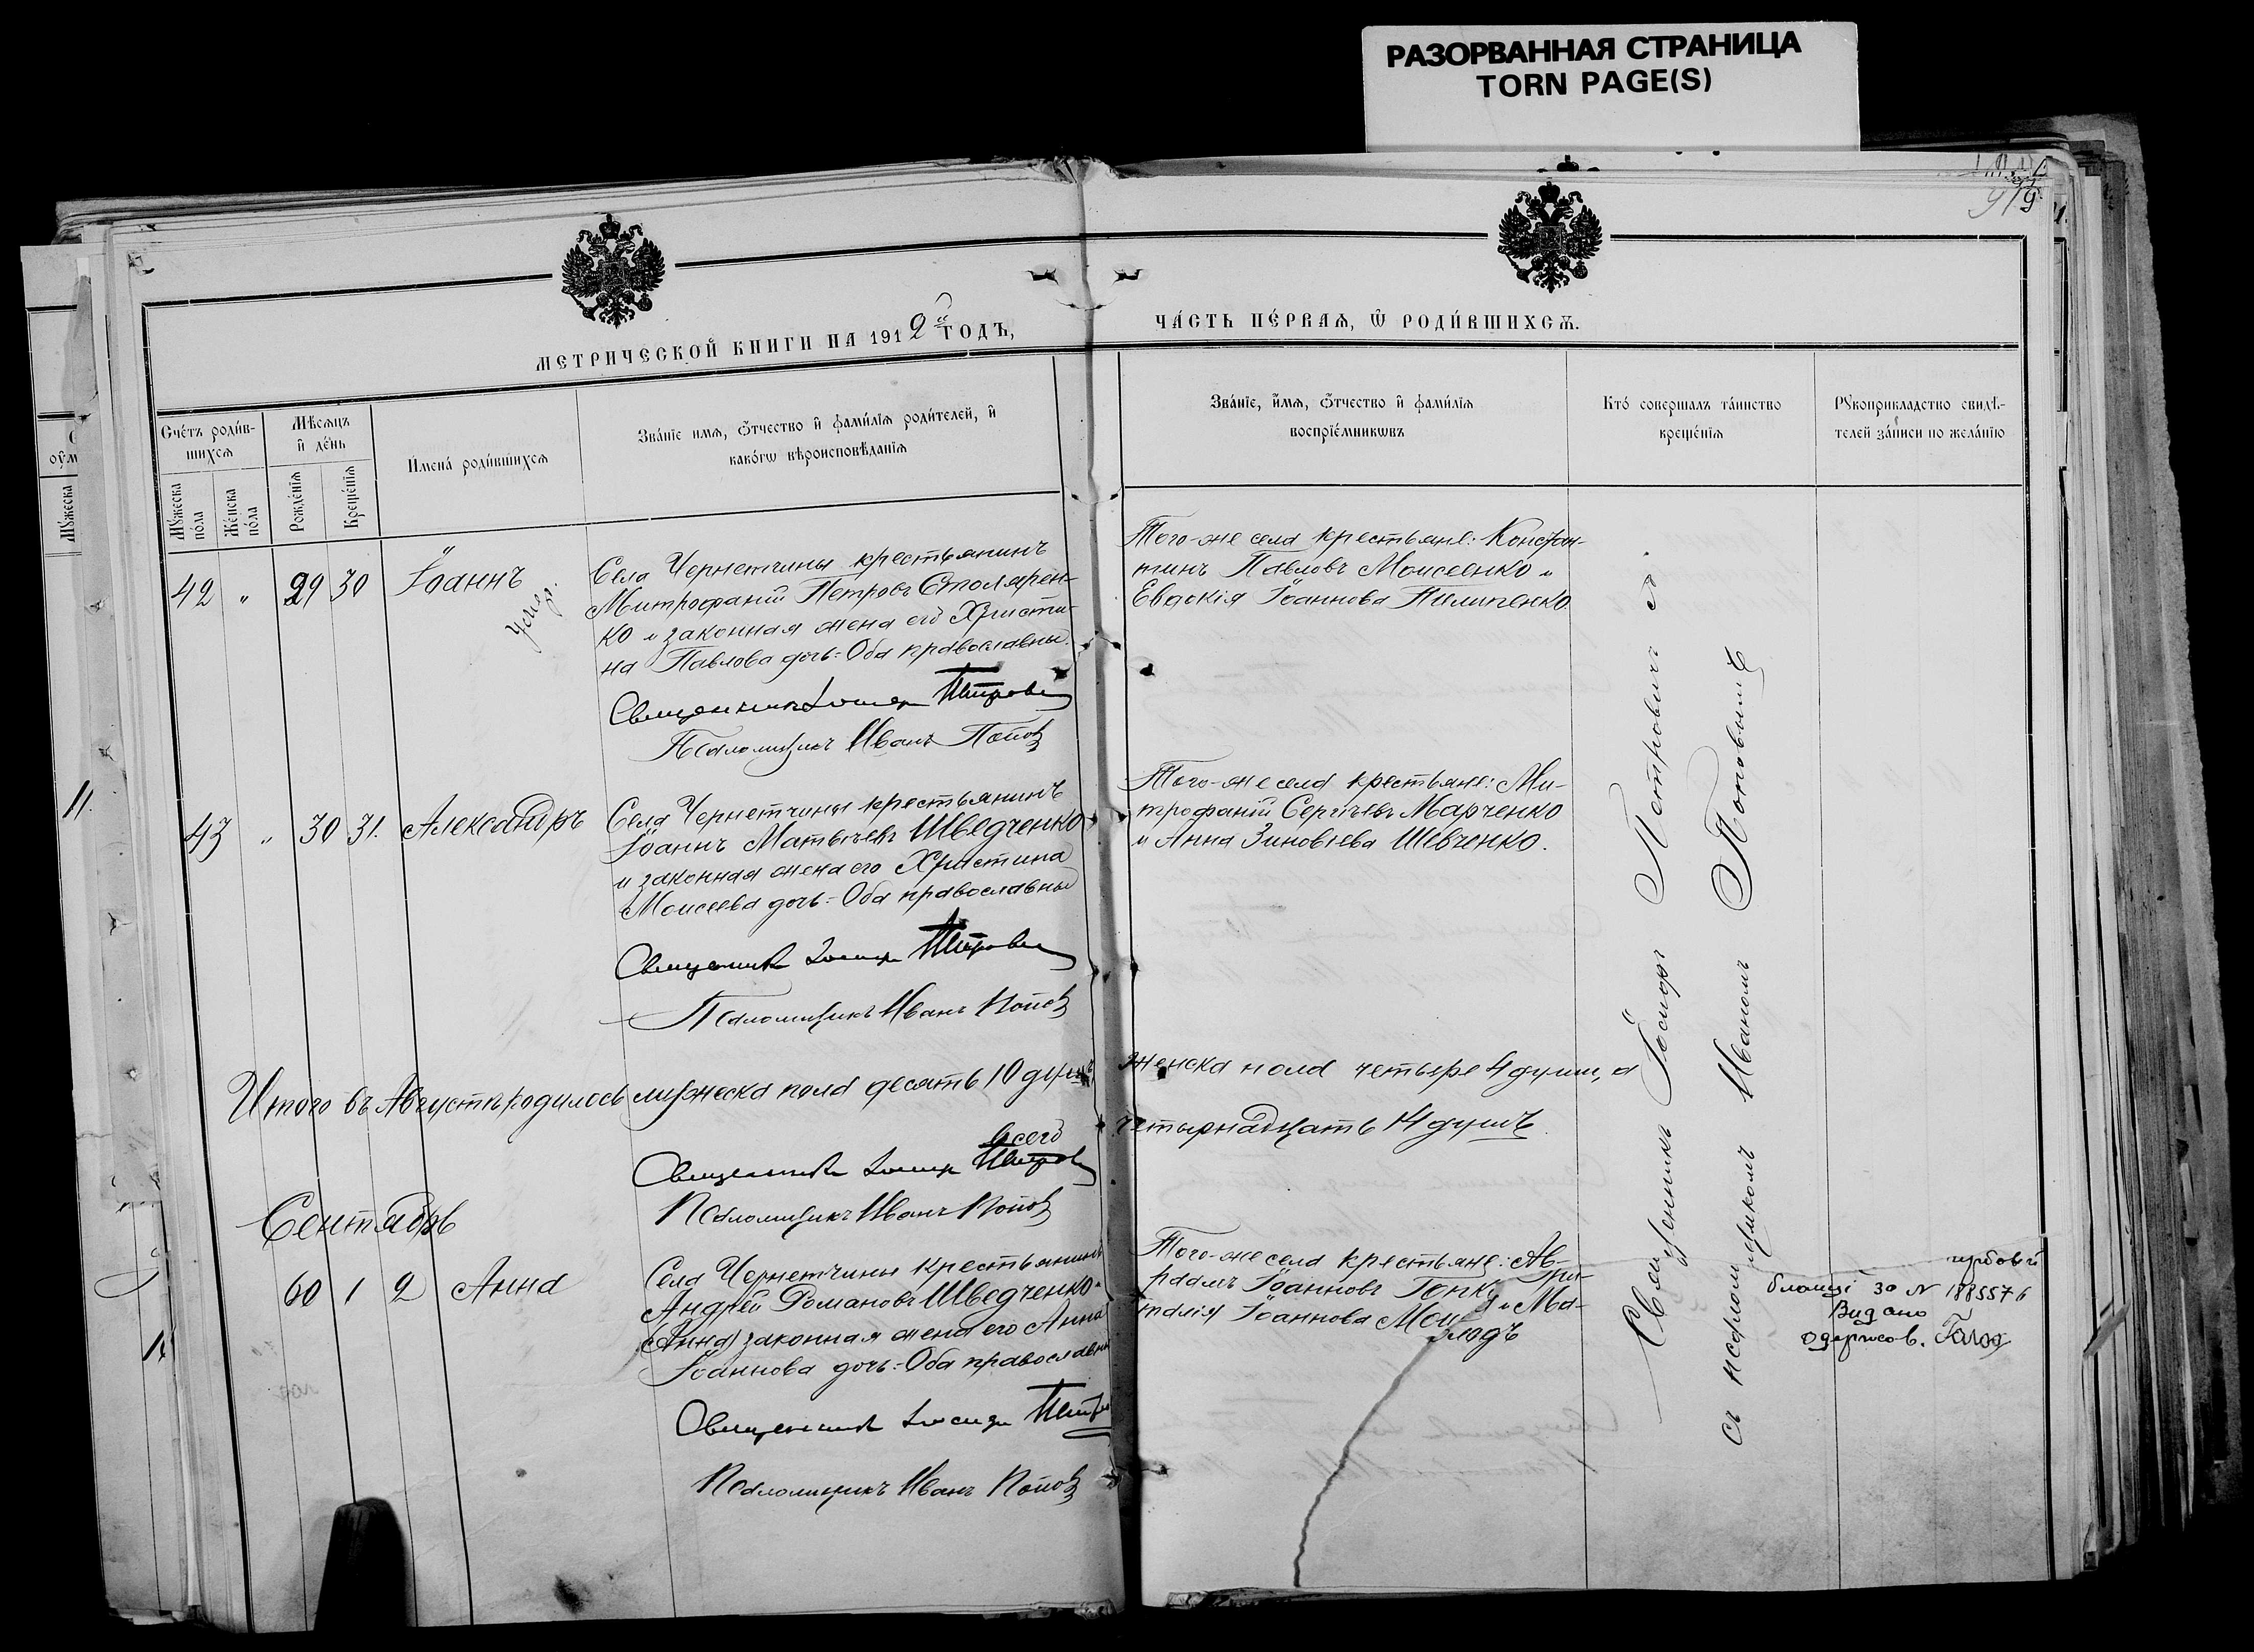 РАЗОРВАННАЯ СТРАНИЦА
TORN PAGE(S)
МЕТРИЧЕСКОЙ КНИГИ НА 1912 й ГОДЪ,
ЧА́СТЬ ПЕ́РВАЯ, Ѿ РОДИ́ВШИХСѦ.
Сче́тъ роди́в-
шихсѧ
Мꙋжеска
по́ла
Же́нска
по́ла
Мѣ́сѧцъ
и҆ де́нь
Рожде́нїѧ
Креще́нїѧ
И҆мена̀ роди́вшихсѧ
Зва́нїе имѧ, ѻ҆́тчество и҆ фами́лїѧ роди́телей, и҆
како́гѡ вѣроисповѣ́данїѧ
Зва́нїе, и҆́мѧ, ѻ҆́тчество и҆ фами́лїѧ
воспрїе́мникѡвъ
Кто̀ совершалъ та́инство
креще́нїѧ
Рꙋкоприкладство свидѣ́-
телей за́писи по жела́нїю
42 " 29 30 Іоаннъ
умер.
Села Чернетчины крестьянинъ
Митрофаній Петровъ Столярен-
ко и законная жена его Христи-
на Павлова дочь. Оба православны.
Священникъ Іосифъ Петровъ
Псаломщикъ Иванъ Поповъ
Того-же села крестьяне: Констан-
тинъ Павловъ Моисеенко и
Евдокія Іоаннова Пилипенко
43 " 30 31. Александръ
Села Чернетчины крестьянинъ
Іоаннъ Матвѣевъ Шведченко
и законная жена его Христина
Моисеева дочь. Оба православны
Священникъ Іосифъ Петровъ
Псаломщикъ Иванъ Поповъ
Того-же села крестьяне: Ми-
трофаній Сергѣевъ Марченко
и Анна Зиновіева Шевченко.
Итого въ Августѣ родилось мужеска пола десять 10 душъ, женска пола четыре 4 души, а
всего четырнадцать 14 душъ.
Священникъ Іосифъ Петровъ
Псаломщикъ Иванъ Поповъ
Сентябрь
60 1 2 Анна
Села Чернетчины крестьянинъ
Андрей Романовъ Шведченко и
(Анна) законная жена его Анна
Іоаннова дочь. Оба православны
Священникъ Іосифъ Петровъ
Псаломщикъ Иванъ Поповъ
Того-же села крестьяне: Ав-
раамъ Іоанновъ и Ма-
Іоаннова
Священникъ Іосифъ Петровичъ
съ псаломщикомъ Иваномъ Поповымъ
гербовій
бланці за № 188557 б
Видано